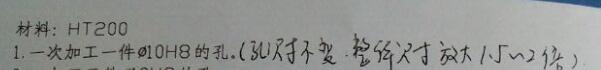 材料：HT200
1.一次加工一件ø10H8的孔.(孔尺寸不变.整体尺寸放大1.5~2倍)